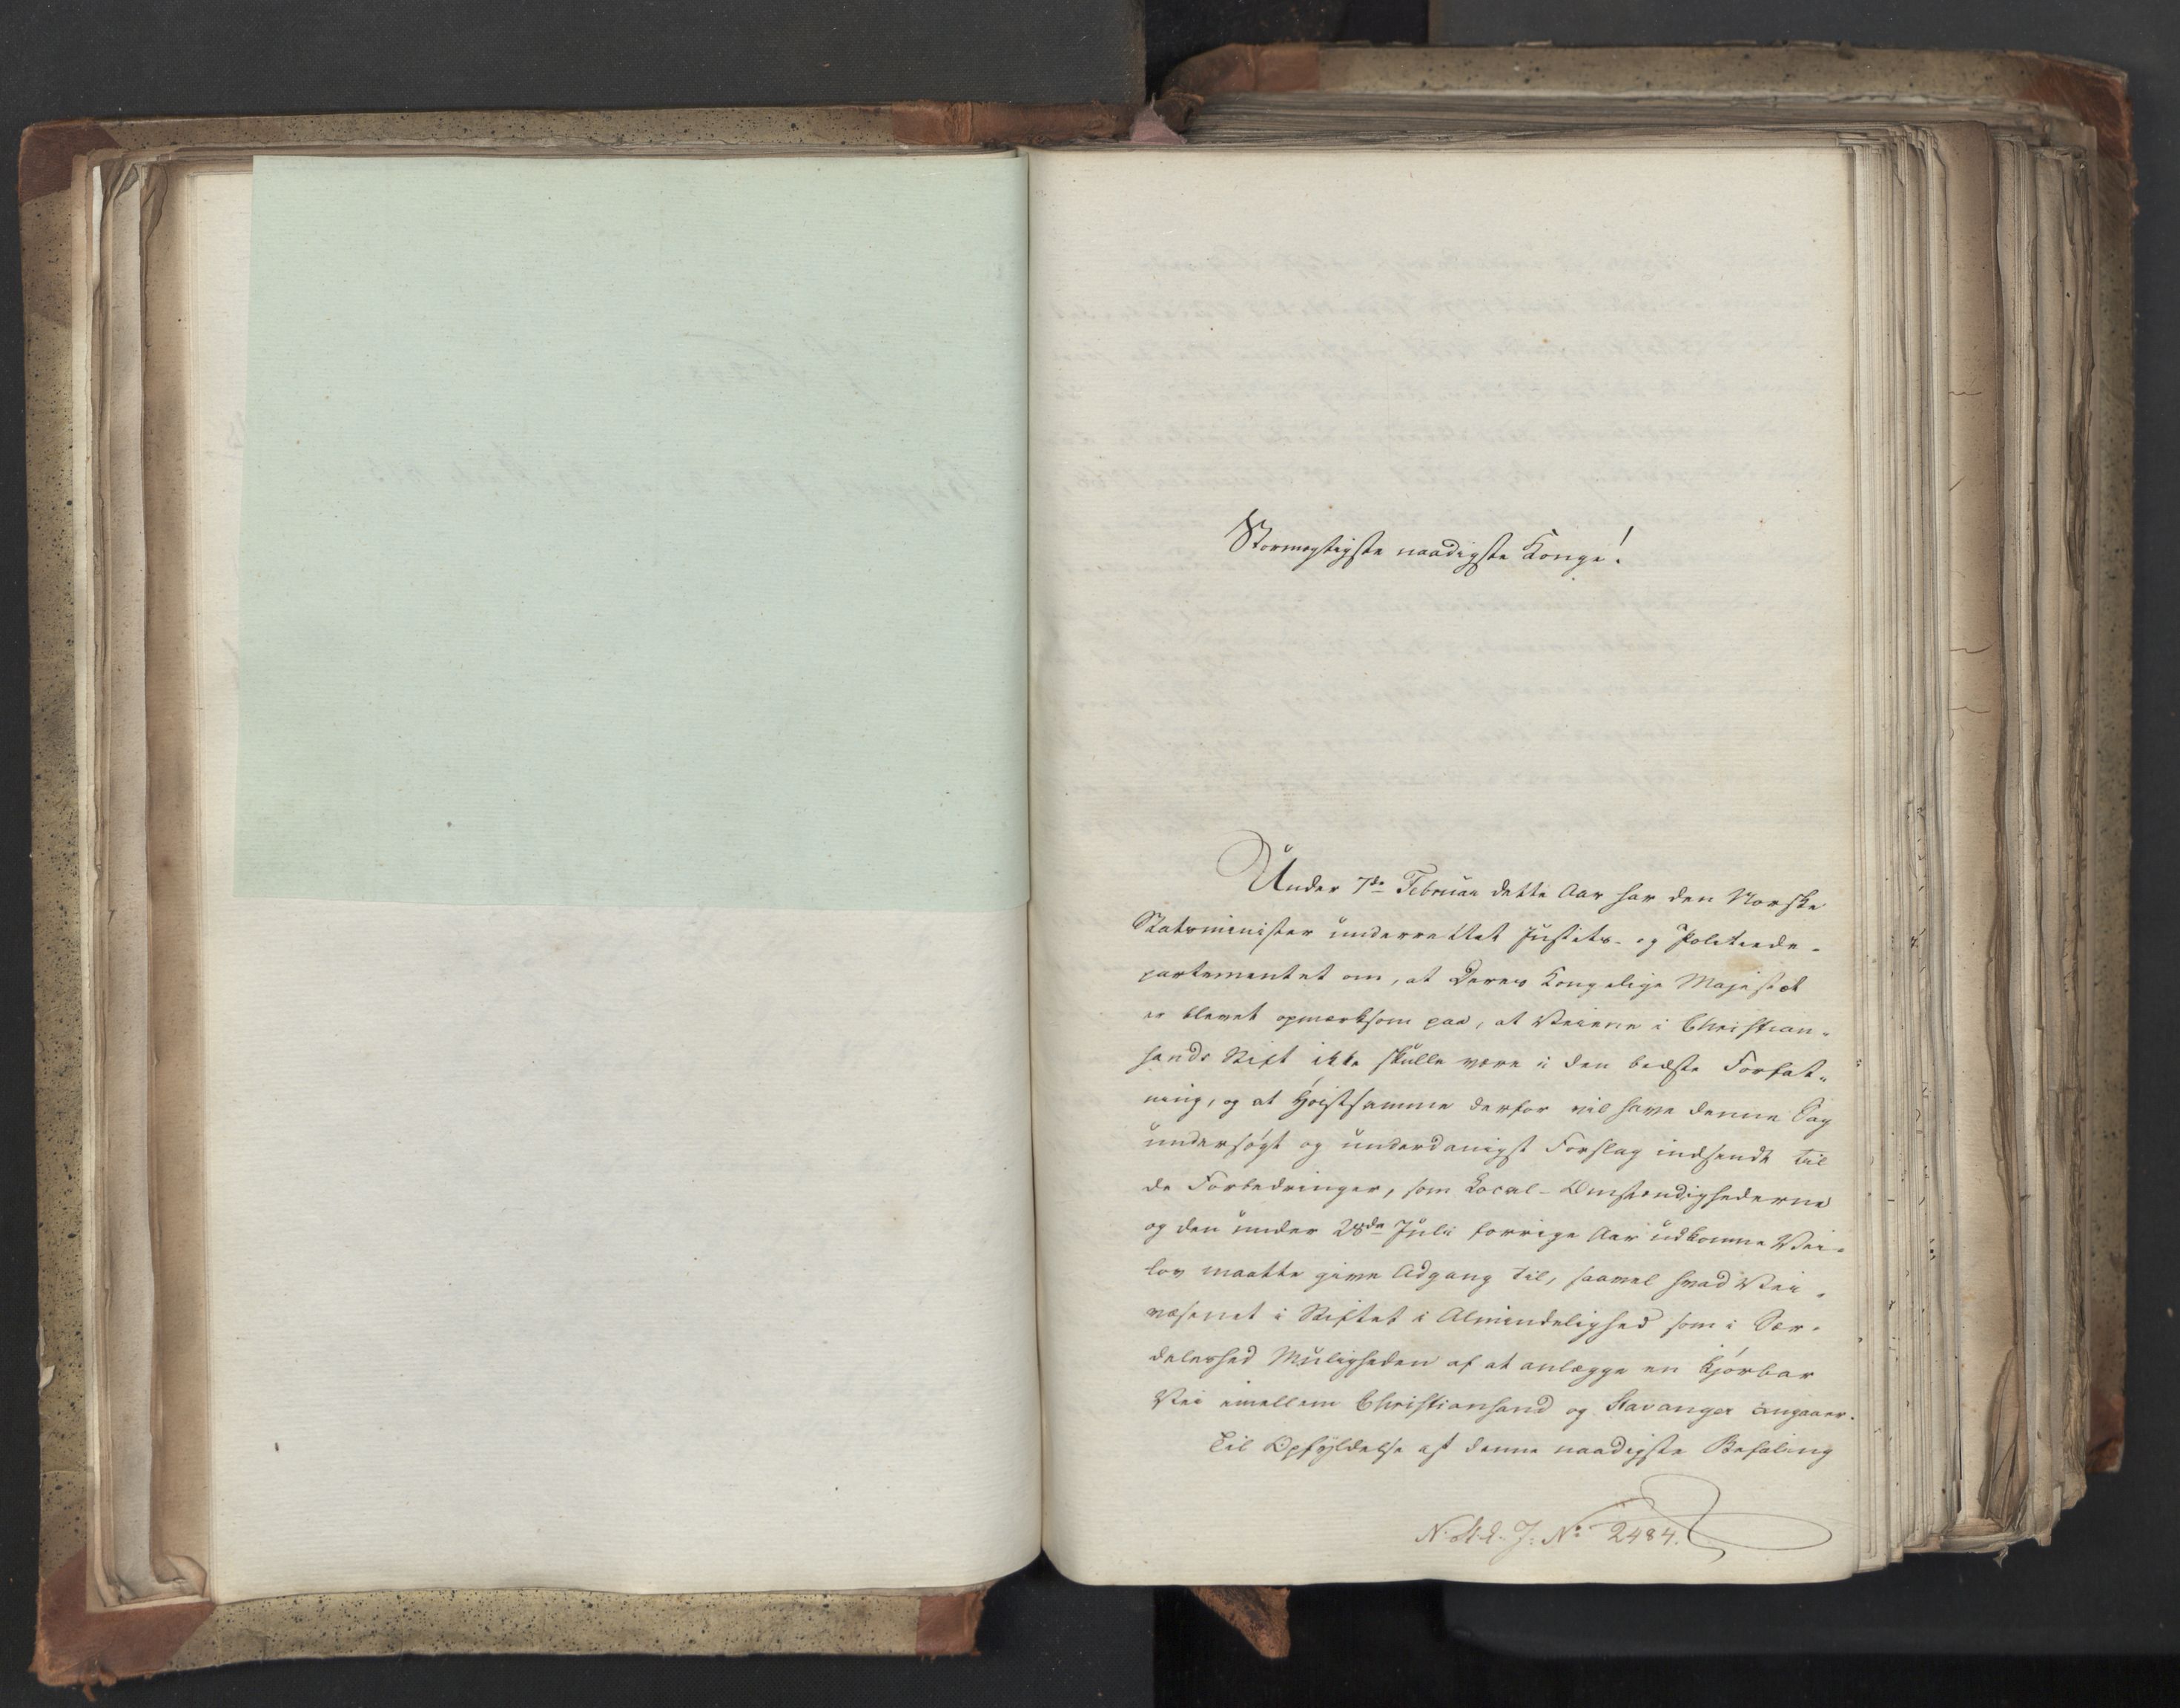 Stormægtigste naadigste Konge!
Under 7de Februar dette Aar har den Norske
Statsminister underrettet Justits- og Politiede-
partementet om, at Deres Kongelige Majestæt
er blevet opmærksom paa, at Veiene i Christian-
sands Stift ikke skulle være i den bedste Forfat-
ning, og at Høistsamme derfor vil have denne Sag
undersøgt og underdanigst Forslag indsendt til
de Forbedringer, som Local-Omstændighederne
og den under 28de Juli forrige Aar udkomne Vei-
lov maatte give Adgang til, saavel hvad Vei-
væsenet i Stiftet i Almindelighed som i Sær-
deleshed Muligheden af at anlægge en kjørbar
Vei imellem Christiansand og Stavanger angaaer.
Til Opfyldelse af denne naadigste Befaling
J: No 2484.